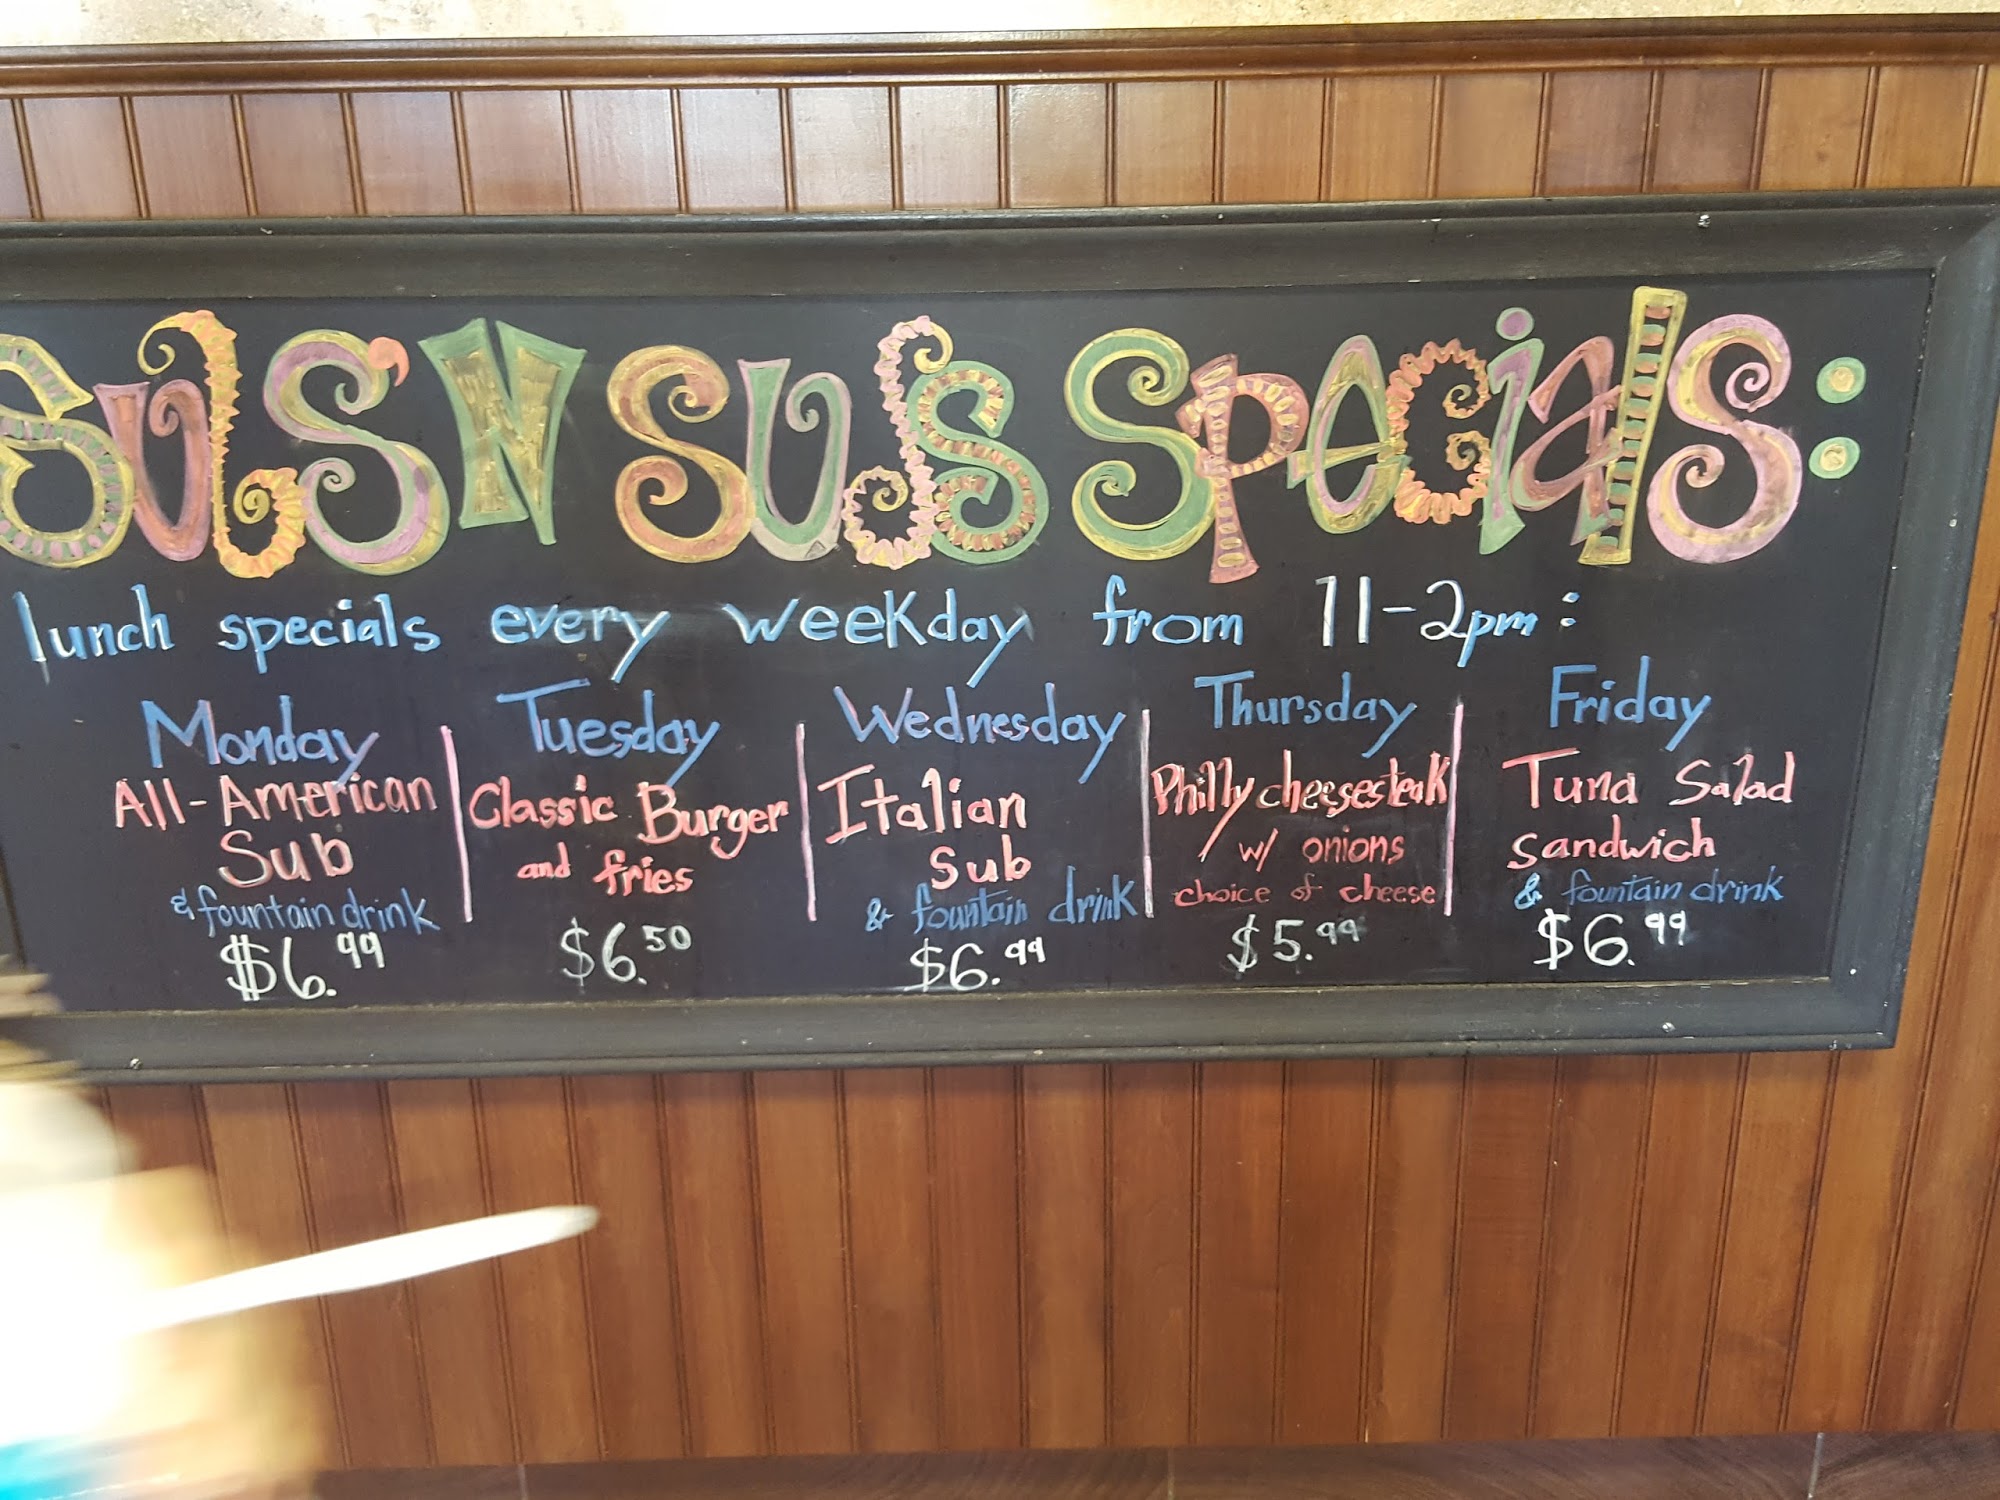 SubS'N SubS Specials:
lunch specials every weekday from 11-2pm:
Monday
All-American
Sub
& fountain drink
$6.99
Tuesday
Classic Burger
and fries
$6.50
Wednesday
Italian
Sub
& fountain drink
$6.99
Thursday
Philly cheesesteak
w/ onions
choice of cheese
$5.99
Friday
Tuna Salad
Sandwich
& fountain drink
$6.99